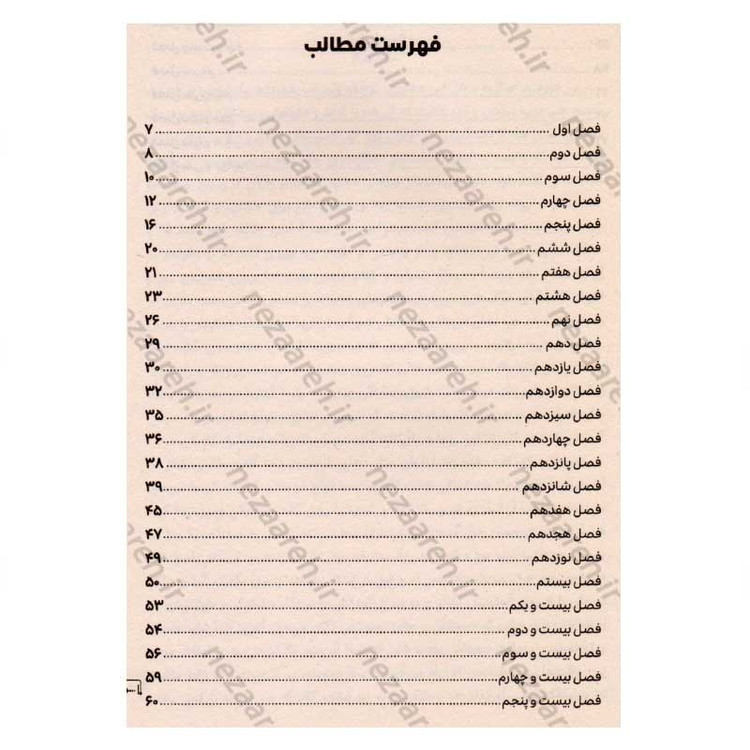 فهرست مطالب
فصل اول ........ ۷
فصل دوم ........ ۸
فصل سوم ........ ۱۰
فصل چهارم ........ ۱۲
فصل پنجم ........ ۱۶
فصل ششم ........ ۲۰
فصل هفتم ........ ۲۱
فصل هشتم ........ ۲۳
فصل نهم ........ ۲۶
فصل دهم ........ ۲۹
فصل یازدهم ........ ۳۰
فصل دوازدهم ........ ۳۲
فصل سیزدهم ........ ۳۵
فصل چهاردهم ........ ۳۶
فصل پانزدهم ........ ۳۸
فصل شانزدهم ........ ۳۹
فصل هفدهم ........ ۴۵
فصل هجدهم ........ ۴۷
فصل نوزدهم ........ ۴۹
فصل بیستم ........ ۵۰
فصل بیست و یکم ........ ۵۳
فصل بیست و دوم ........ ۵۴
فصل بیست و سوم ........ ۵۶
فصل بیست و چهارم ........ ۵۹
فصل بیست و پنجم ........ ۶۰
nezaareh.ir